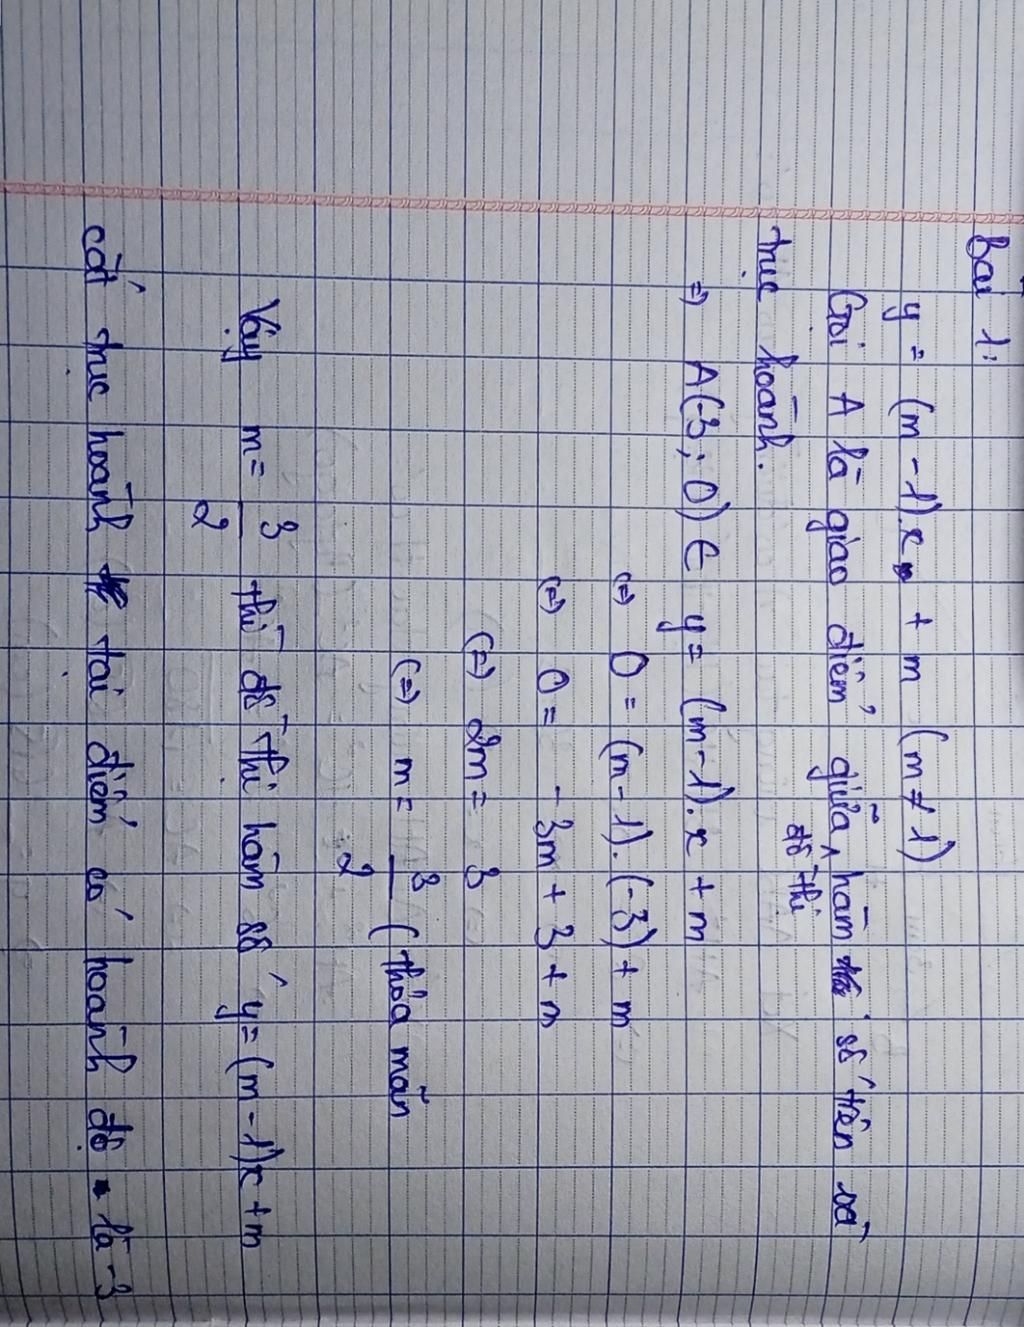 Bài 1:
y = (m - 1).x + m (m ≠ 1)
Gọi A là giao điểm giữa đồ thị hàm số trên và
trục hoành.
=) A(-3 ; 0) ∈ y = (m - 1).x + m
(=) 0 = (m - 1).(-3) + m
(=) 0 = - 3m + 3 + m
(=) 2m = 3
(=) m = 3/2 (thỏa mãn
Vậy m = 3/2 thì đồ thị hàm số y = (m - 1)x + m
cắt trục hoành tại điểm có hoành độ là -3